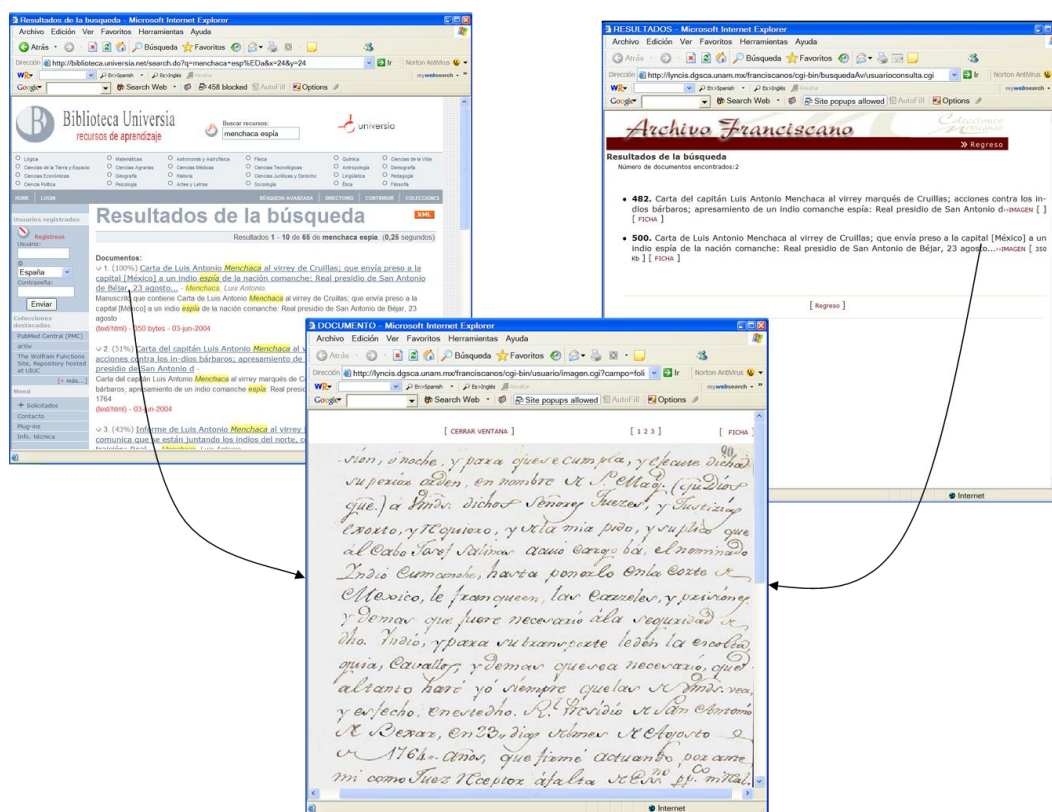 Resultados de la busqueda - Microsoft Internet Explorer
Archivo Edición Ver Favoritos Herramientas Ayuda
Atrás Búsqueda Favoritos
Dirección http://biblioteca.universia.net/search.do?q=menchaca+esp%EDa&x=24&y=24 Ir Norton AntiVirus
En>Spanish En>Inglés mywebsearch
Google Search Web 458 blocked AutoFill Options
Biblioteca Universia
recursos de aprendizaje
Buscar recursos:
menchaca espía
universia
Lógica Matemáticas Astronomía y Astrofísica Física Química Ciencias de la Vida
Ciencias de la Tierra y Espacio Ciencias Agrarias Ciencias Médicas Ciencias Tecnológicas Antropología Demografía
Ciencias Económicas Geografía Historia Ciencias Jurídicas y Derecho Lingüística Pedagogía
Ciencia Política Psicología Artes y Letras Sociología Ética Filosofía
HOME LOGIN BÚSQUEDA AVANZADA DIRECTORIO CONTRIBUIR COLECCIONES
Usuarios registrados
Regístrese
Usuario:
@
España
Contraseña:
Enviar
Colecciones destacadas
PubMed Central (PMC)
arXiv
The Wolfran Functions Site, Repository hosted at UIUC
[+ más...]
Menú
Solicitados
Contacto
Plug-ins
Info. técnica
Resultados de la búsqueda XML
Resultados 1 - 10 de 65 de menchaca espia. (0,25 segundos)
Documentos:
1. (100%) Carta de Luis Antonio Menchaca al virrey de Cruillas; que envía preso a la
capital [México] a un indio espía de la nación comanche: Real presidio de San Antonio
de Béjar, 23 agosto... - Menchaca, Luis Antonio
Manuscrito que contiene Carta de Luis Antonio Menchaca al virrey de Cruillas; que envía preso a la
capital [México] a un indio espía de la nación comanche: Real presidio de San Antonio de Béjar, 23
agosto
(text/html) - 350 bytes - 03-jun-2004
2. (51%) Carta del capitán Luis Antonio Menchaca al v
acciones contra los in-dios bárbaros; apresamiento de
presidio de San Antonio d -
Carta del capitán Luis Antonio Menchaca al virrey marqués de C
bárbaros; apresamiento de un indio comanche espía: Real presid
1764
(text/html) - 03-jun-2004
3. (43%) Informe de Luis Antonio Menchaca al virrey
comunica que se están juntando los indios del norte, c
RESULTADOS - Microsoft Internet Explorer
Archivo Edición Ver Favoritos Herramientas Ayuda
Atrás Búsqueda Favoritos
Dirección http://lyncis.dgsca.unam.mx/franciscanos/cgi-bin/busquedaAv/usuarioconsulta.cgi Ir Norton AntiVirus
En>Spanish En>Inglés mywebsearch
Google Search Web Site popups allowed AutoFill Options
Archivo Franciscano
Colecciones Mexicanas
Regreso
Resultados de la búsqueda
Número de documentos encontrados:2
482. Carta del capitán Luis Antonio Menchaca al virrey marqués de Cruillas; acciones contra los in-
dios bárbaros; apresamiento de un indio comanche espía: Real presidio de San Antonio d IMAGEN [ ]
[ FICHA ]
500. Carta de Luis Antonio Menchaca al virrey de Cruillas; que envía preso a la capital [México] a un
indio espía de la nación comanche: Real presidio de San Antonio de Béjar, 23 agosto... IMAGEN [ 350
Kb ] [ FICHA ]
[ Regreso ]
Internet
DOCUMENTO - Microsoft Internet Explorer
Archivo Edición Ver Favoritos Herramientas Ayuda
Atrás Búsqueda Favoritos
Dirección http://lyncis.dgsca.unam.mx/franciscanos/cgi-bin/usuario/imagen.cgi?campo=foli Ir Norton AntiVirus
En>Spanish En>Inglés mywebsearch
Google Search Web Site popups allowed AutoFill Options
[ CERRAR VENTANA ] [ 1 2 3 ] [ FICHA ]
90
sión, ó noche, y para que se cumpla, y efecute dicha
superior orden, en nombre
que.) á dichos Señores Juezes, y Justizias
exorto, y requiero, y mia pido, y suplico que
ál Cabo Josef Salinas acuio cargo bá, el nominado
Indio Cumanche, hasta ponerlo enla Corte
Mexico, le franqueen, las Carzeles, y prisiónes
y demas que fuere necesarió ála seguridad
dho. Indió, y para su transporte ledén la escolta,
guia, Cavallos, y demas quesea necesarió, que
altanto haré yó siempre quelas vea,
y es fecho enestedho. Rl. Presidio San Antonió
Bexar, en 23, dias Agosto
1764 años, que firmé actuando por ante
mi como Juez Receptor áfalta
Internet